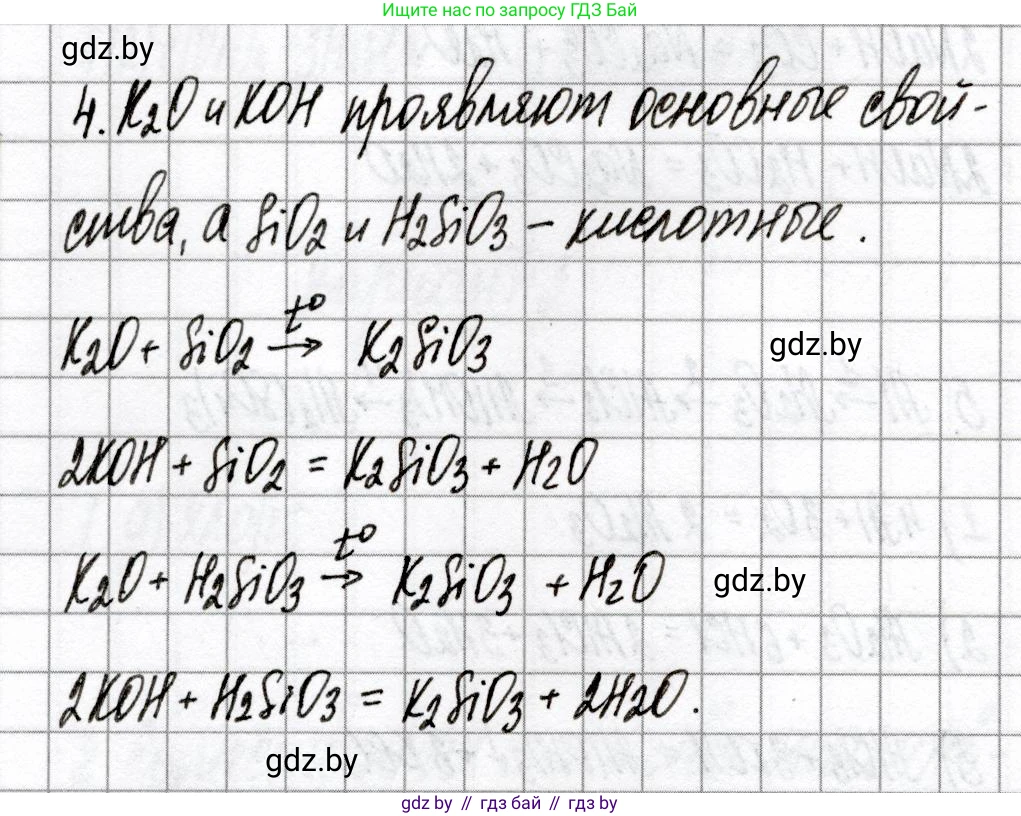 Ищите нас по запросу ГДЗ Бай
gdz.by
4. K₂O и KOH проявляют основные свой-
ства, а SiO₂ и H₂SiO₃ – кислотные.
K₂O + SiO₂ →(t°) K₂SiO₃
gdz.by
2KOH + SiO₂ = K₂SiO₃ + H₂O
K₂O + H₂SiO₃ →(t°) K₂SiO₃ + H₂O
gdz.by
2KOH + H₂SiO₃ = K₂SiO₃ + 2H₂O.
gdz.by
gdz by // гдз бай // gdz by